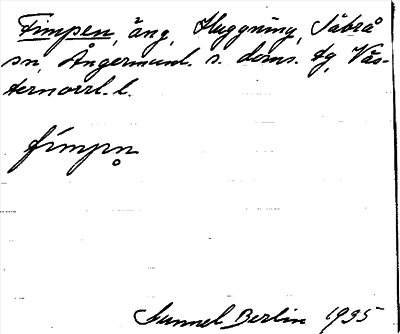 Fimpen, äng, Huggning, Säbrå
sn, Ångermanl. s. doms. tg, Väs-
ternorrl. l.
fímpn̥
Gunnel Berlin 1935